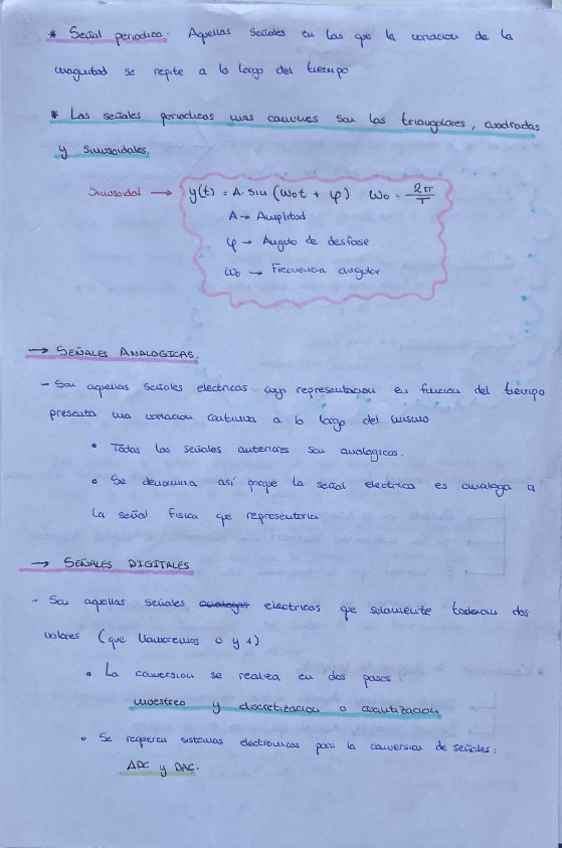 * Señal periodica. Aquellas señales en las que la variacion de la
magnitud se repite a lo largo del tiempo
* Las señales periodicas mas comunes son las triangulares, cuadradas
y sinusoidales.
Sinusoidal → y(t) = A. sin (ω₀t + φ) ω₀ = 2π/T
A → Amplitud
φ → Angulo de desfase
ω₀ → Frecuencia angular
→ SEÑALES ANALOGICAS.
- Son aquellas señales electricas cuya representacion en funcion del tiempo
presenta una variacion continua a lo largo del mismo
• Todas las señales anteriores son analogicas.
• Se denomina así porque la señal electrica es análoga a
la señal fisica que representaria
→ SEÑALES DIGITALES
- Son aquellas señales electricas que solamente dos
valores (que llamaremos 0 y 1)
• La conversion se realiza en dos pasos:
muestreo y discretizacion o cuantizacion
• Se requieren sistemas electronicos para la conversion de señales:
ADC y DAC.